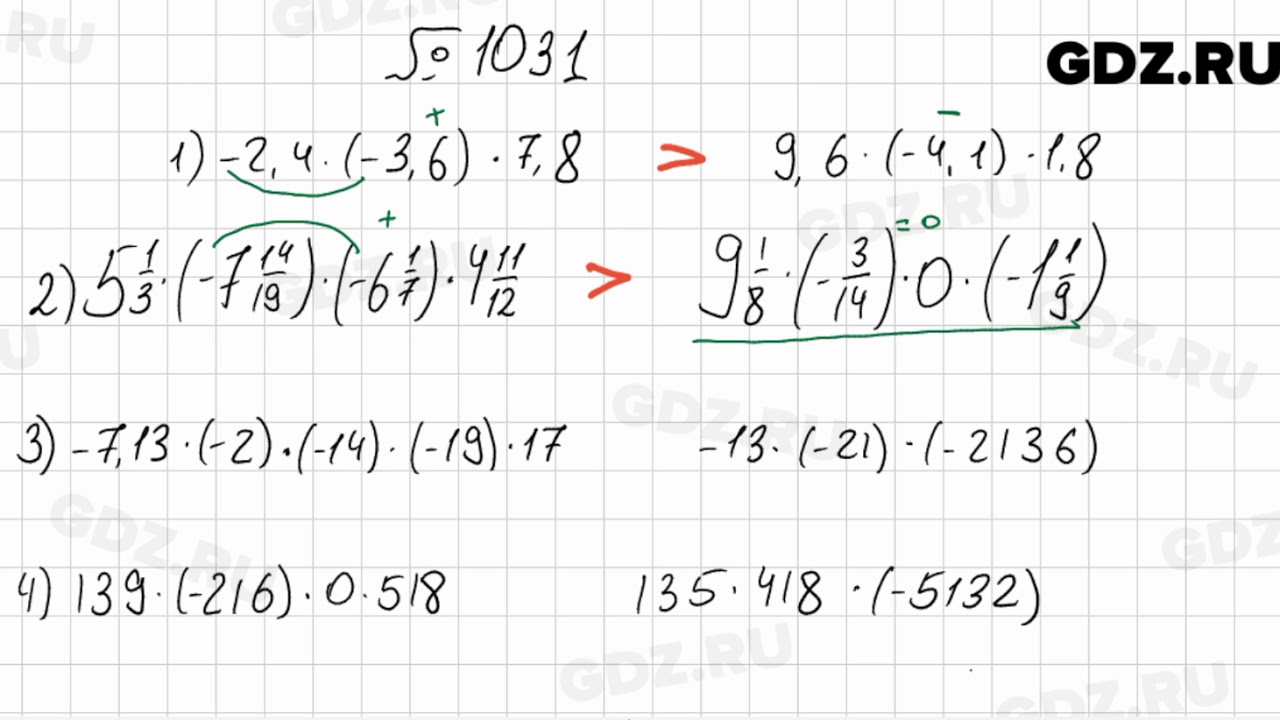 № 1031
GDZ.RU
+ −
1) -2,4 · (-3,6) · 7,8 > 9,6 · (-4,1) · 1,8
+ = 0
2) 5 1/3 · (-7 14/19) · (-6 1/7) · 4 11/12 > 9 1/8 · (-3/14) · 0 · (-1 1/9)
3) -7,13 · (-2) · (-14) · (-19) · 17 -13 · (-21) · (-2136)
4) 139 · (-216) · 0 · 518 135 · 418 · (-5132)